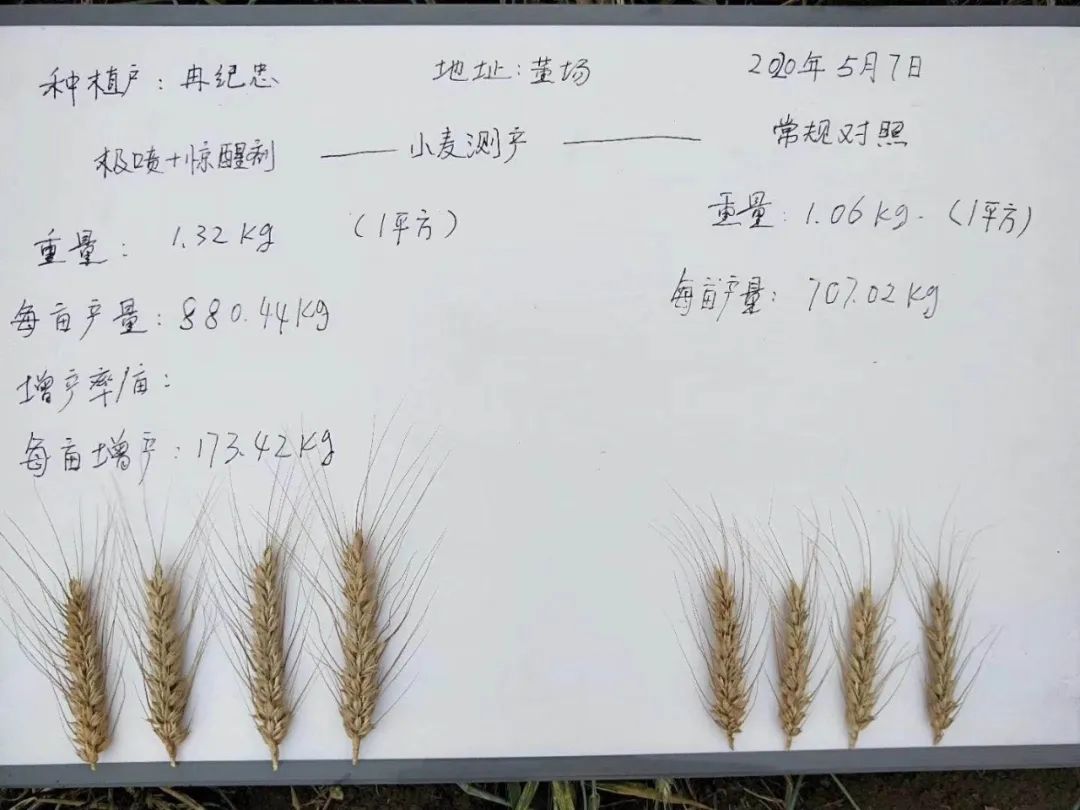 种植户：冉纪忠 地址：董场 2020年5月7日
极喷+惊醒剂 —— 小麦测产 —— 常规对照
重量：1.32kg （1平方） 重量：1.06kg. （1平方）
每亩产量：880.44kg 每亩产量：707.02kg
增产率/亩：
每亩增产：173.42kg